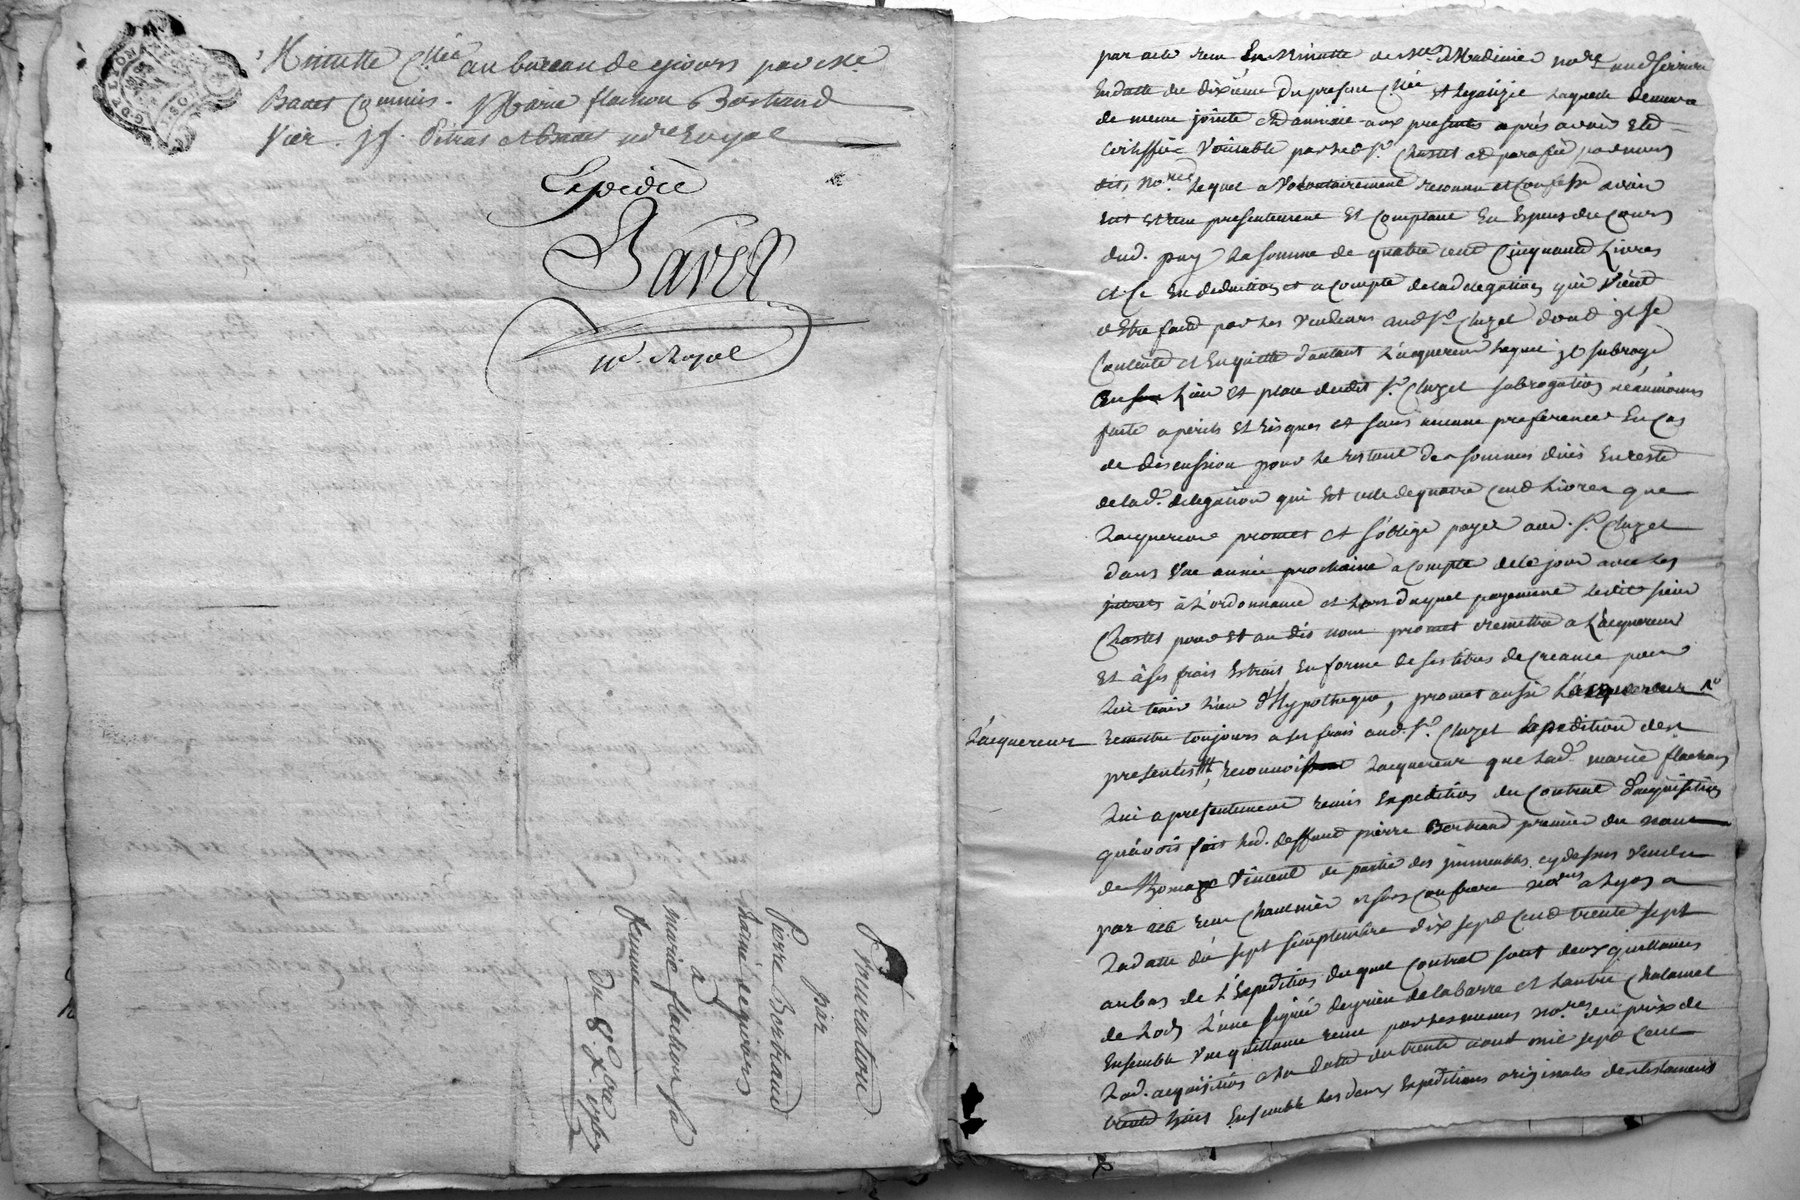 Minutte au bureau de par Me
Bavet commis. Marie flachon Bertrand
royal
Expédié
Bavet
nre. Royal
Procuration
par
Pierre Bertrand
à
marie flachon sa
femme
Du 8e. Xbre
par acte reçu En Minutte de Me nore
En datte du dixieme Du present et legalizée laquelle demeure
de meme jointe et annéxée aux presentes après avoir eté
Certiffiée Véritable par led Sr. Chastet et paraffée par nous
dits nores. lequel a Volontairement reconnu et Confessé avoir
Eut et reçu presentement et Comptant En Espèces du Cours
dud. pay la somme de quatre cent Cinquante Livres
et Ce En déduction et a compte de lad delegation qui Vient
d'Etre faite par les Vendeurs aud Sr. Cluzel dont il se
Contente et En quitte d'autant L'acquereur lequel il subroge
En son Lieu et place dudit Sr. Cluzel subrogation néanmoins
faite a perils et risques et sans aucune preference En Cas
de discussion pour le restant des sommes dües En reste
de lad. delegation qui Est celle de quatre cent Livres que
L'acquereur promet et s'oblige payer aud. Sr. Cluzel
dans Une année prochaine a compter de ce jour avec les
jnterets à L'ordonnance et lors duquel payement ledit sieur
Chastet pour et au dis nom promet remettre a L'acquereur
et à ses frais Extrait En forme de ses titres de Creance pour
Lui tenir Lieu d'Hypotheque, promet aussi L'acquereur
L'acquereur
remettre toujours a ses frais aud Sr. Cluzel Expedition des
presentes, reconnoissant Lacquereur que lad. marie flachon
Lui a presentement remis Expedition du Contrat d'acquisition
qu'avoit fait led. deffunt pierre Bertrand premier du nom
de Vincent de partie des jmmeubles cy dessus Vendu
par acte reçu Chaulmier et son Confrere nores a Lyon a
La datte du sept semptembre dix sept cent trente sept
au bas de L'Expedition duquel Contrat sont deux quittances
de Lods L'une signée de la barre et Lautre Chalamel
Ensemble Une quittance reçue par les memes nores. du prix de
Lad. acquisition a la datte du trente aout mil sept cent
trente huit Ensemble les deux Expeditions originales des testaments